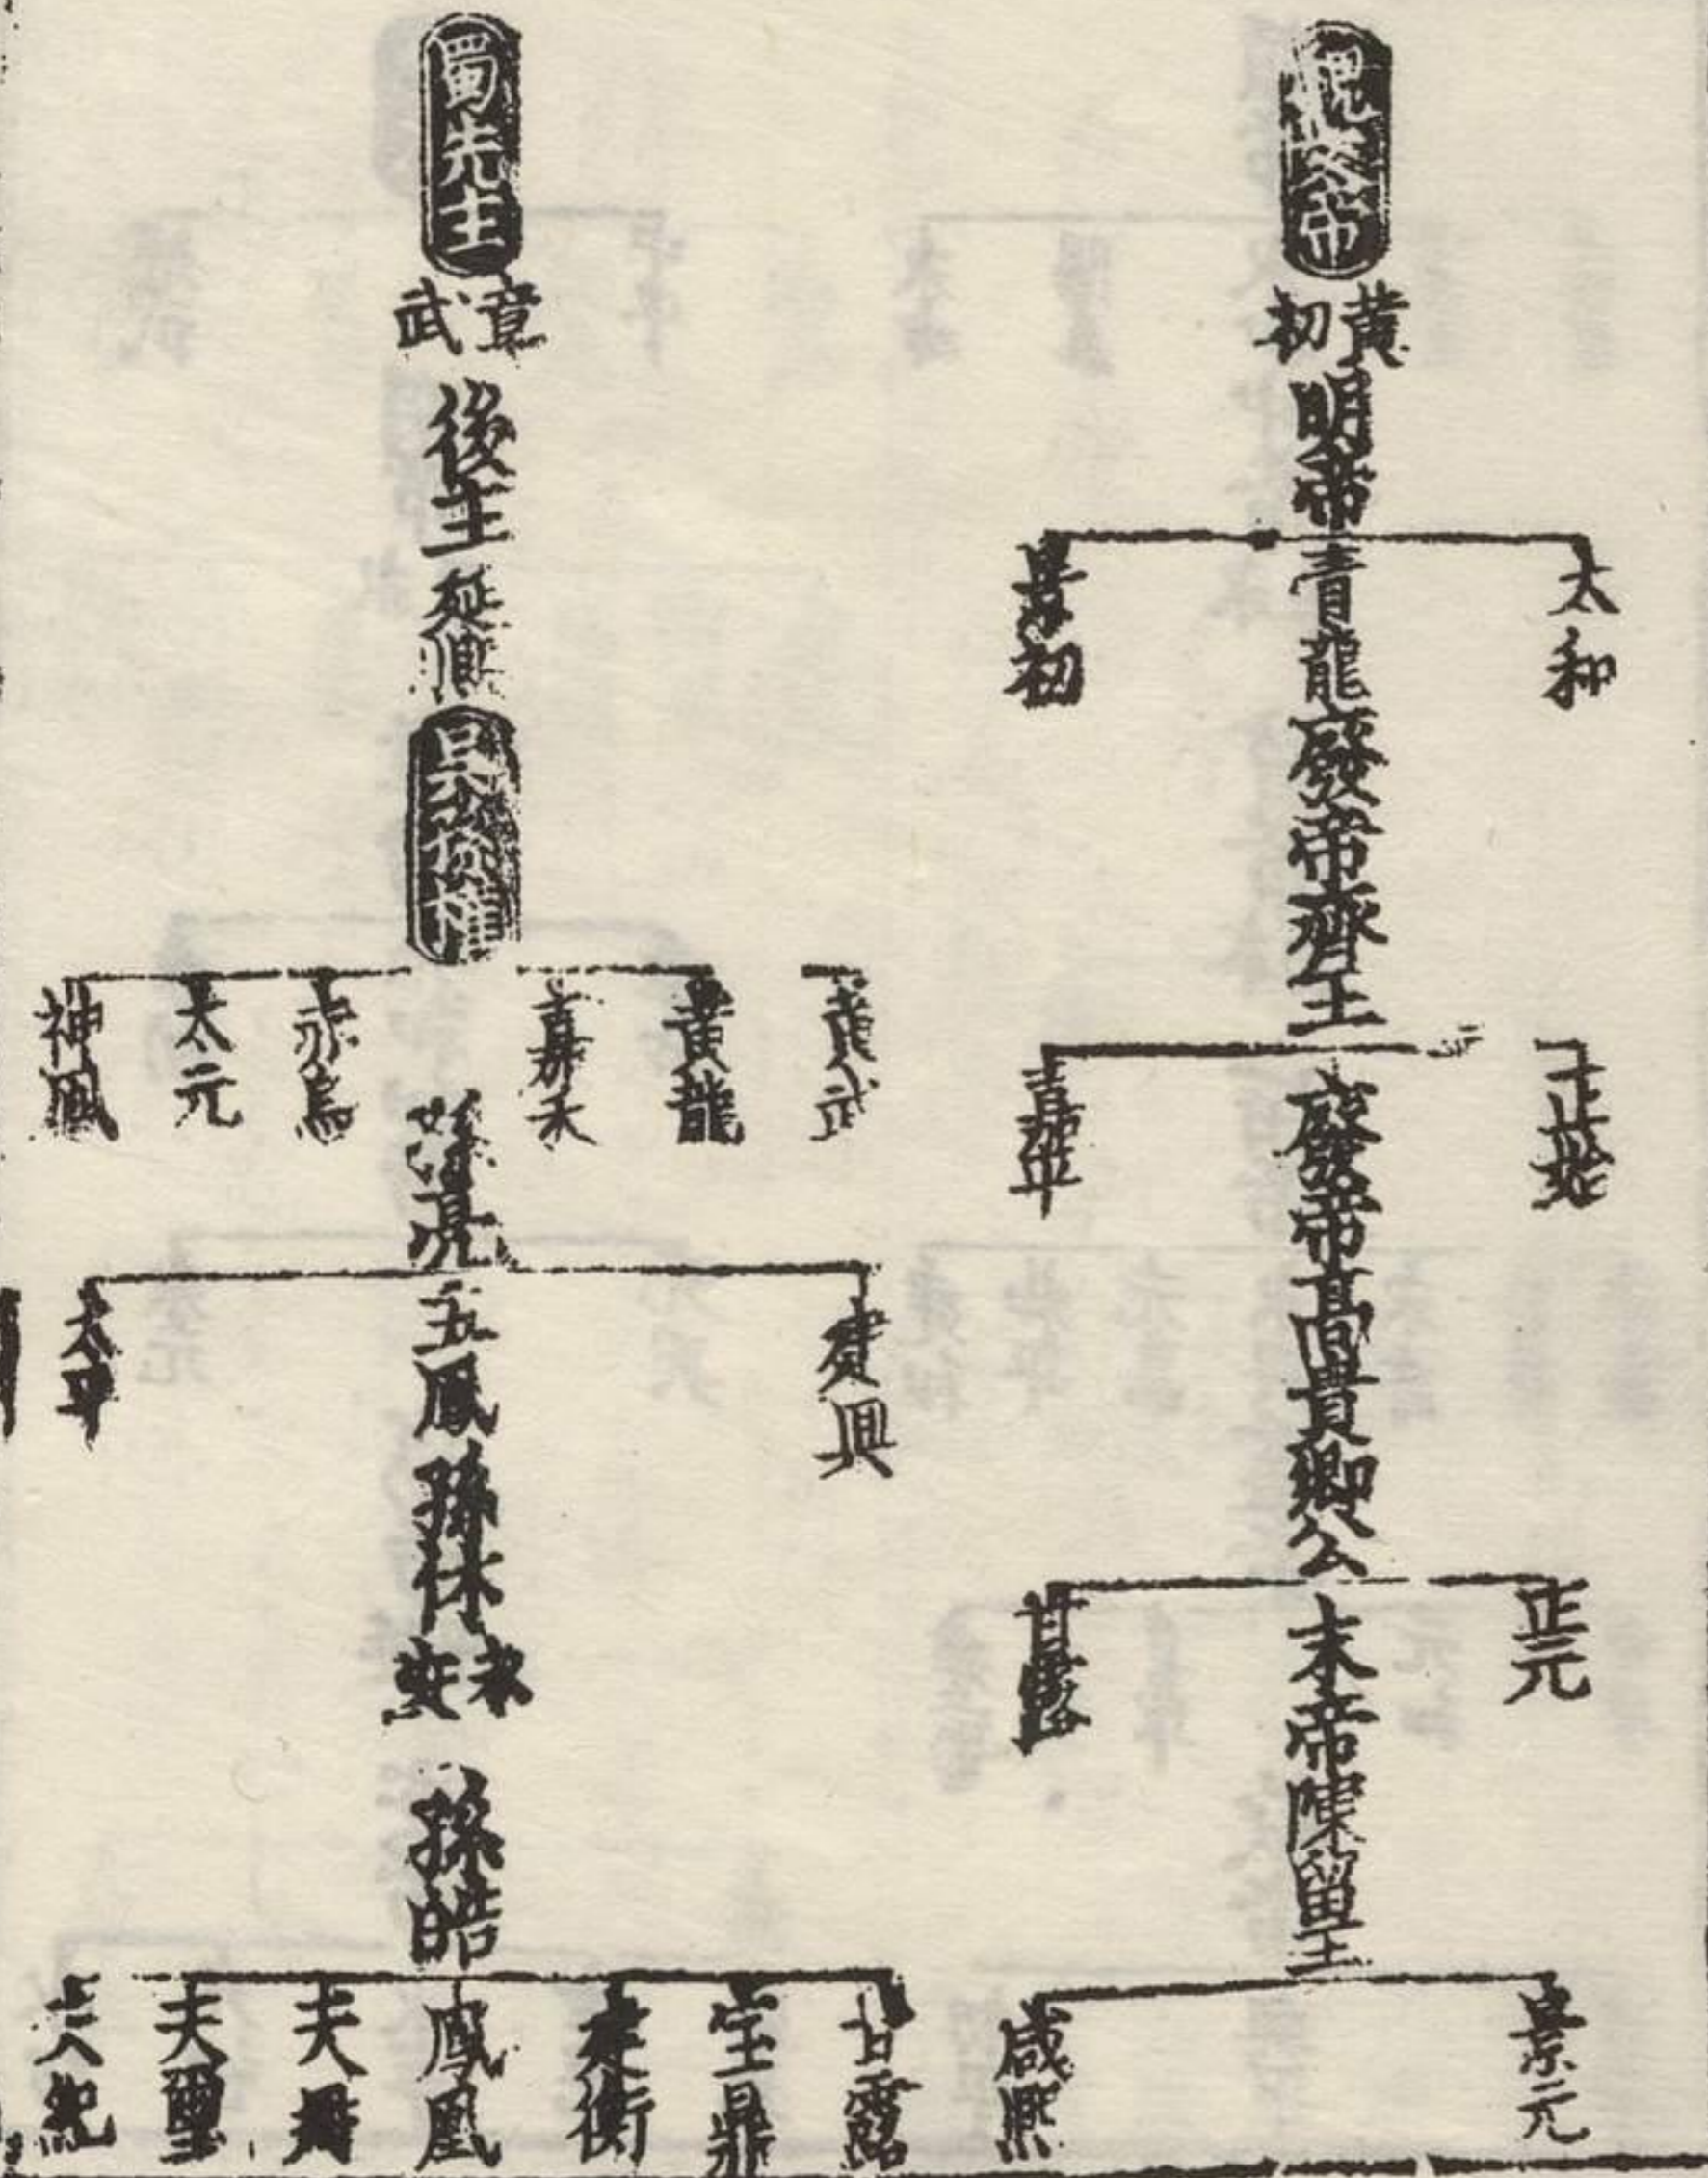 魏文帝
黄初
明帝
太和
青龍
景初
廢帝齊王
正始
嘉平
廢帝高貴卿公
正元
甘露
末帝陳留王
景元
咸熙
蜀先主
章武
後主
延凞
吳孫權
黄武
黄龍
嘉禾
赤烏
太元
神鳳
孫亮
建興
五鳳
太平
孫休
永安
孫皓
甘露
宝鼎
建衡
鳳凰
天冊
天璽
天紀